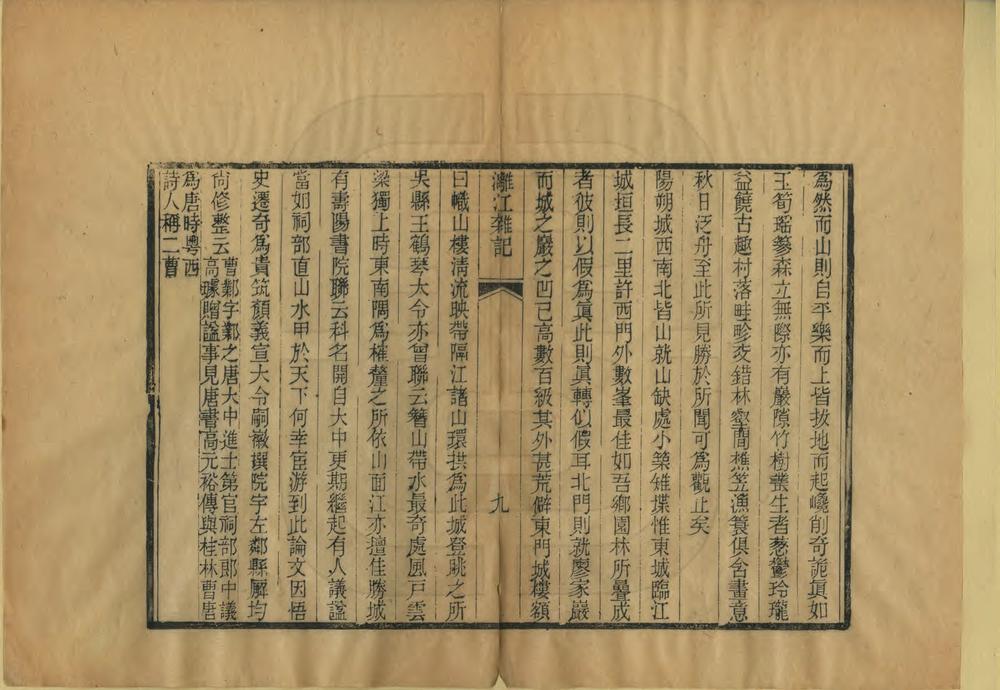 爲然而山則自平樂而上皆拔地而起巉削奇詭眞如
玉筍瑤篸森立無際亦有巖隙竹樹叢生者葱鬱玲瓏
益饒古趣村落畦畛交錯林壑閒樵笠漁簑俱含畫意
秋日泛舟至此所見勝於所聞可爲觀止矣
陽朔城西南北皆山就山缺處小築雉堞惟東城臨江
城垣長二里許西門外數峯最佳如吾鄕園林所疊成
者彼則以假爲眞此則眞轉似假耳北門則就廖家巖
而城之巖之凹已高數百級其外甚荒僻東門城樓額
灕江雜記
九
曰幟山樓淸流映帶隔江諸山環拱爲此城登眺之所
吳縣王鶴琴大令亦曾聯云簪山帶水最奇處風戸雲
梁獨上時東南隅爲榷釐之所依山面江亦擅佳勝城
有壽陽書院聯云科名開自大中更期繼起有人議諡
當如祠部直山水甲於天下何幸宦游到此論文因悟
史遷奇爲貴筑顏義宣大令嗣徽撰院字左鄰縣廨均
尙修整云
曹鄴字鄴之唐大中進士第官祠部郎中議
高璩贈諡事見唐書高元裕傳與桂林曹唐
爲唐時粵西
詩人稱二曹